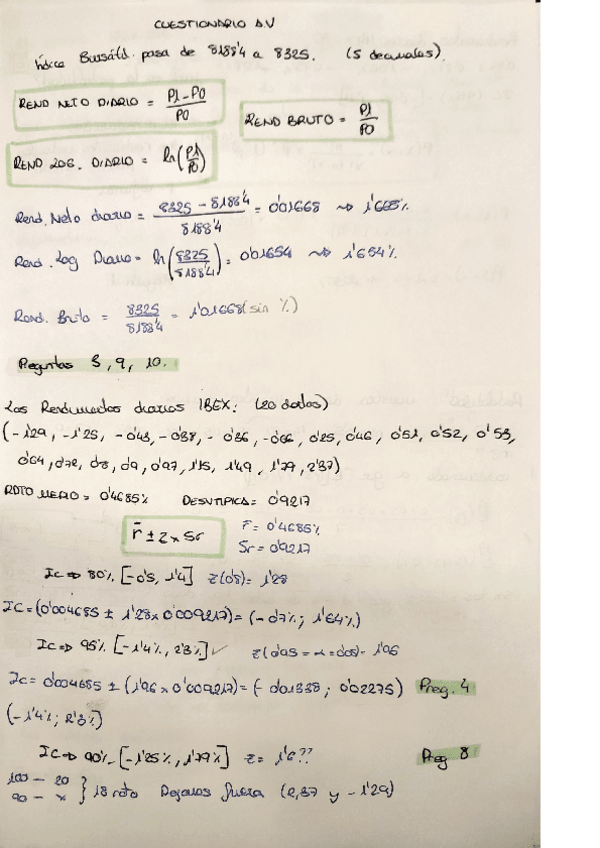 CUESTIONARIO A.V
Índice Bursátil pasa de 8188'4 a 8325. (5 decimales).
REND NETO DIARIO = P1-P0 / P0
REND BRUTO = P1 / P0
REND LOG. DIARIO = ln(P1/P0)
Rend. Neto diario = 8325 - 8188'4 / 8188'4 = 0'01668 ⇝ 1'668%
Rend. Log Diario = ln(8325/8188'4) = 0'01654 ⇝ 1'654%
Rend. Bruto = 8325 / 8188'4 = 1'01668 (sin %)
Preguntas 3, 9, 10.
Los Rendimientos diarios IBEX: (20 datos)
(-1'29, -1'25, -0'43, -0'38, -0'36, -0'06, 0'25, 0'46, 0'51, 0'52, 0'53,
0'64, 0'72, 0'8, 0'9, 0'97, 1'15, 1'49, 1'79, 2'37)
RDTO MEDIO = 0'4685% DESV.TIPICA = 0'9217
r̄ ± z × Sr
r̄ = 0'4685%
Sr = 0'9217
IC ⇒ 80% [-0'5, 1'4] z(0'8) = 1'28
IC = (0'004685 ± 1'28 × 0'009217) = (-0'7%; 1'64%)
IC ⇒ 95% [-1'4%, 2'3%] ✓ z(0'95 = α = 0'05) = 1'96
IC = 0'004685 ± (1'96 × 0'009217) = (-0'01338; 0'02275) Preg. 4
(-1'4%; 2'3%)
IC ⇒ 90% [-1'25%, 1'79%] z = 1'6?? Preg 8
100 - 20
90 - x } 18 rdto Dejamos fuera (2,37 y -1'29)